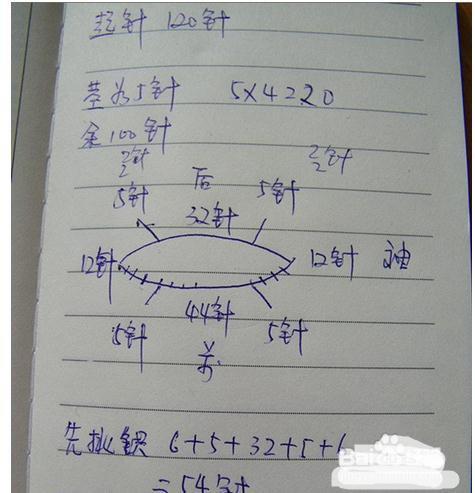 起针 120针
茎为5针 5×4=20
余100针
2针 2针
5针 后 5针
32针
12针 12针 袖
44针
5针 5针
前
先挑织 6+5+32+5+6
=54针
Bai